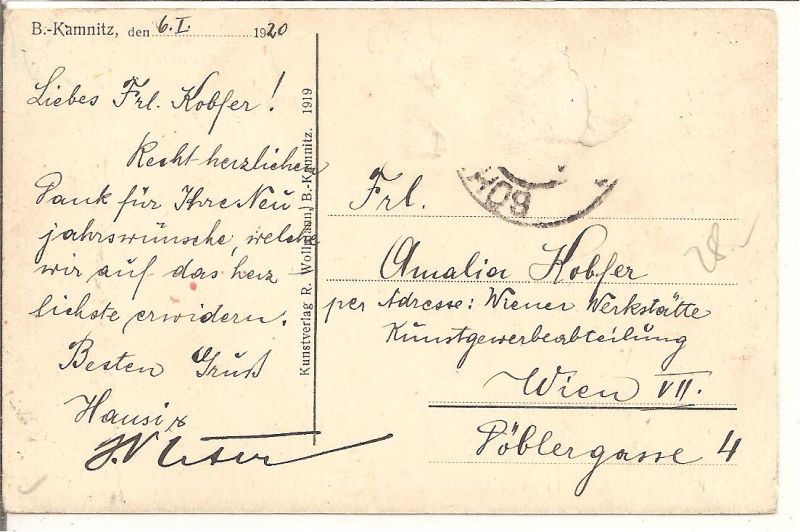 B.-Kamnitz, den 6.I. 1920
Liebes Frl. Kobfer!
Recht herzlichen
Dank für Ihre Neu
jahrswünsche, welche
wir auf das herz
lichste erwidern.
Besten Gruß
Hansi
Kunstverlag R. Wollmann, B.-Kamnitz. 1919
BÖH
Frl.
Amalia Kobfer
per Adresse: Wiener Werkstätte
Kunstgewerbeabteilung
Wien VII.
Döblergasse 4